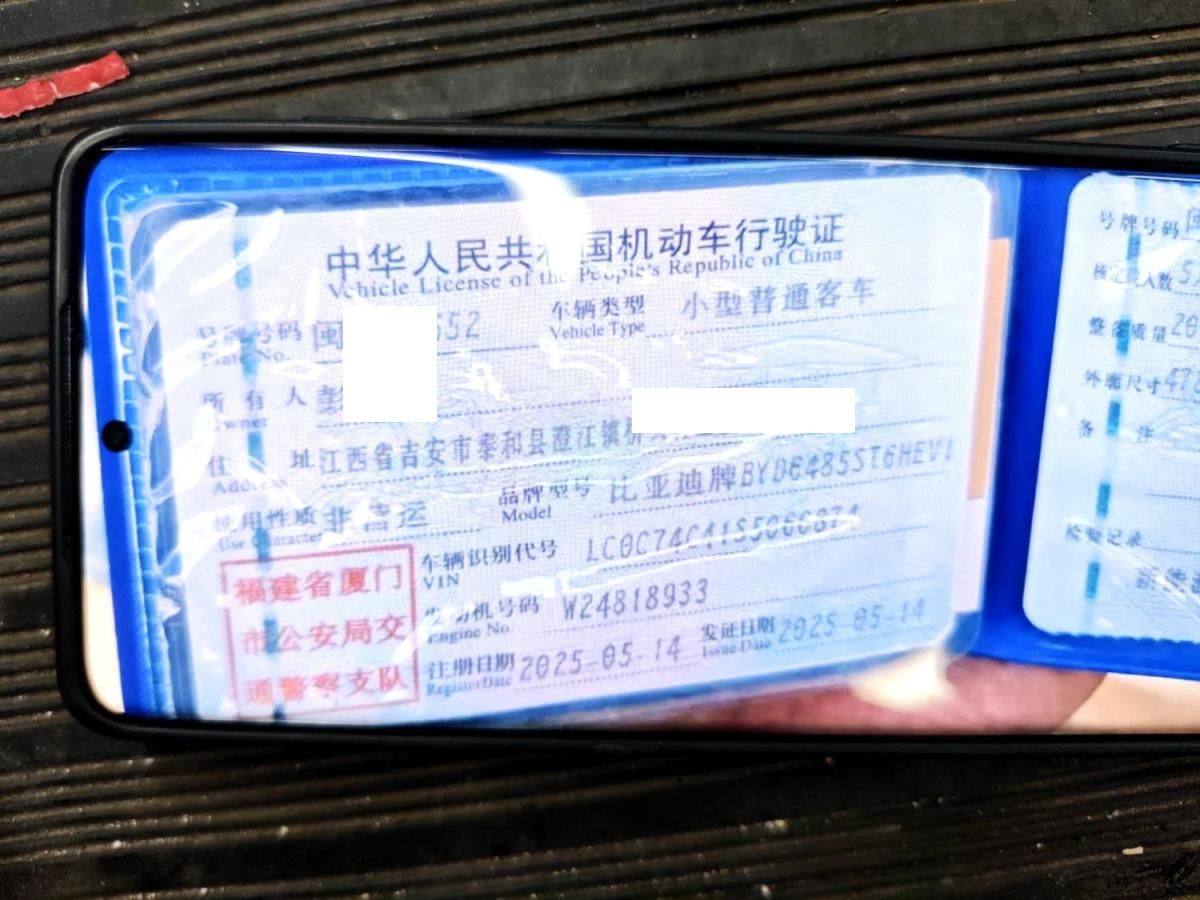 中华人民共和国机动车行驶证
Vehicle License of the People's Republic of China
号牌号码 闽 552 车辆类型 小型普通客车
Plate No. Vehicle Type
所有人 彭
Owner
住址 江西省吉安市泰和县澄江镇桥
Address
使用性质 非营运 品牌型号 比亚迪牌BYD6485ST6HEV1
Use Character Model
车辆识别代号 LC0C74C41S5066874
VIN
发动机号码 W24818933
Engine No.
注册日期 2025-05-14 发证日期 2025-05-14
Register Date Issue Date
福建省厦门
市公安局交
通警察支队
号牌号码
核定载人数 5
整备质量 20
外廓尺寸 47
备注
检验记录